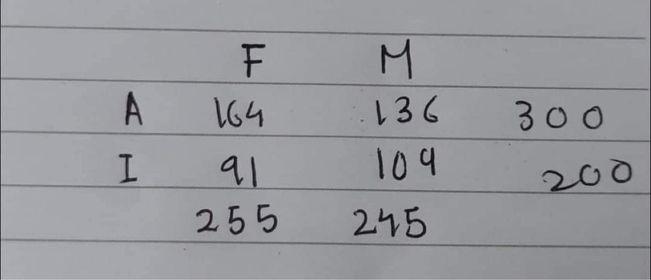 F M
A 164 136 300
I 91 109 200
255 245